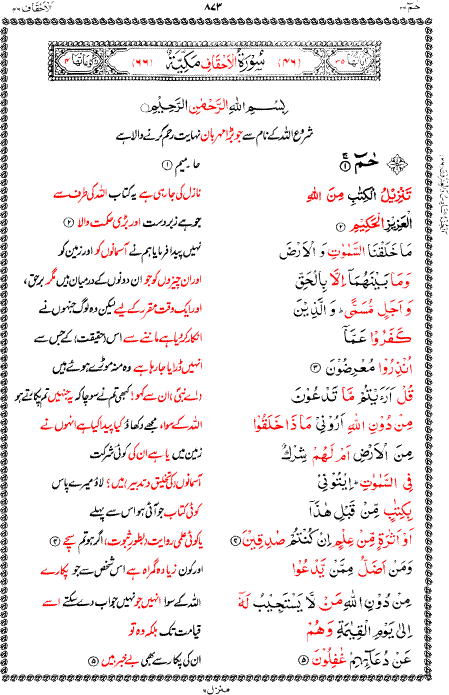 حٰمٓ ۲۶ ۸۷۳ الاحقاف ۴۶
اٰیاتھا ۳۵ (۴۶) سُوۡرَۃُ الۡاَحۡقَافِ مَکِّیَّۃٌ (۶۶) رکوعاتھا ۴
بِسۡمِ اللّٰہِ الرَّحۡمٰنِ الرَّحِیۡمِ
شروع اللہ کے نام سے جو بڑا مہربان نہایت رحم کرنے والا ہے
حٰمٓ ۚ﴿۱﴾ حا۔میم ﴿۱﴾
تَنۡزِیۡلُ الۡکِتٰبِ مِنَ اللّٰہِ نازل کی جا رہی ہے یہ کتاب اللہ کی طرف سے
الۡعَزِیۡزِ الۡحَکِیۡمِ ﴿۲﴾ جو ہے زبردست اور بڑی حکمت والا ﴿۲﴾
مَا خَلَقۡنَا السَّمٰوٰتِ وَ الۡاَرۡضَ نہیں پیدا فرمایا ہم نے آسمانوں کو اور زمین کو
وَمَا بَیۡنَہُمَاۤ اِلَّا بِالۡحَقِّ اور ان چیزوں کو جو ان دونوں کے درمیان ہیں مگر برحق،
وَ اَجَلٍ مُّسَمًّی ؕ وَ الَّذِیۡنَ اور ایک وقت مقرر کے لیے لیکن وہ لوگ جنہوں نے
کَفَرُوۡا عَمَّاۤ انکار کر دیا ہے ماننے سے اس (حقیقت) کے جس سے
اُنۡذِرُوۡا مُعۡرِضُوۡنَ ﴿۳﴾ انہیں ڈرایا جا رہا ہے وہ منہ موڑے ہوئے ہیں
قُلۡ اَرَءَیۡتُمۡ مَّا تَدۡعُوۡنَ (اے نبیؐ) ان سے کہو! کبھی تم نے سوچا کہ یہ جنہیں تم پکارتے ہو
مِنۡ دُوۡنِ اللّٰہِ اَرُوۡنِیۡ مَاذَا خَلَقُوۡا اللہ کے سوا، مجھے دکھاؤ کیا پیدا کیا ہے انہوں نے
مِنَ الۡاَرۡضِ اَمۡ لَہُمۡ شِرۡکٌ زمین میں یا ہے ان کی کوئی شرکت
فِی السَّمٰوٰتِ ؕ اِیۡتُوۡنِیۡ آسمانوں (کی تخلیق و تدبیر) میں؛ لاؤ میرے پاس
بِکِتٰبٍ مِّنۡ قَبۡلِ ہٰذَاۤ کوئی کتاب جو آئی ہو اس سے پہلے
اَوۡ اَثٰرَۃٍ مِّنۡ عِلۡمٍ اِنۡ کُنۡتُمۡ صٰدِقِیۡنَ ﴿۴﴾ یا کوئی علمی روایت (بطور ثبوت) اگر ہو تم سچے ﴿۴﴾
وَمَنۡ اَضَلُّ مِمَّنۡ یَّدۡعُوۡا اور کون زیادہ گمراہ ہے اس شخص سے جو پکارے
مِنۡ دُوۡنِ اللّٰہِ مَنۡ لَّا یَسۡتَجِیۡبُ لَہٗۤ اللہ کے سوا انہیں جو نہیں جواب دے سکتے اسے
اِلٰی یَوۡمِ الۡقِیٰمَۃِ وَہُمۡ قیامت تک بلکہ وہ تو
عَنۡ دُعَآئِہِمۡ غٰفِلُوۡنَ ﴿۵﴾ ان کی پکار سے بھی بے خبر ہیں ﴿۵﴾
منزل ۶